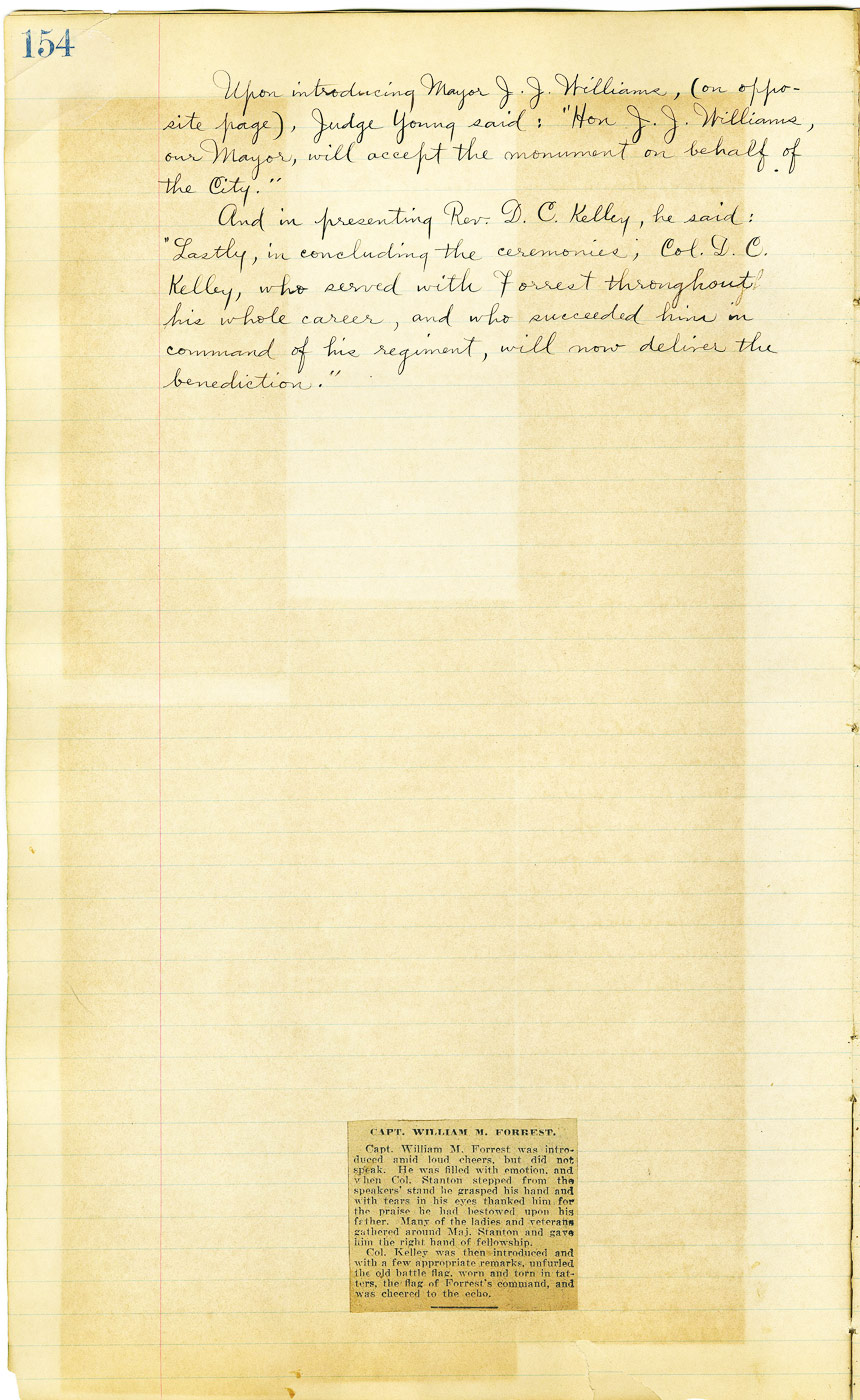 154
Upon introducing Mayor J. J. Williams, (on oppo-
site page), Judge Young said: "Hon J. J. Williams,
our Mayor, will accept the monument on behalf of
the City."
And in presenting Rev. D. C. Kelley, he said:
"Lastly, in concluding the ceremonies, Col. D. C.
Kelley, who served with Forrest throughout
his whole career, and who succeeded him in
command of his regiment, will now deliver the
benediction."
CAPT. WILLIAM M. FORREST.
Capt. William M. Forrest was intro-
duced amid loud cheers, but did not
speak. He was filled with emotion, and
when Col. Stanton stepped from the
speakers' stand he grasped his hand and
with tears in his eyes thanked him for
the praise he had bestowed upon his
father. Many of the ladies and veterans
gathered around Maj. Stanton and gave
him the right hand of fellowship.
Col. Kelley was then introduced and
with a few appropriate remarks, unfurled
the old battle flag, worn and torn in tat-
ters, the flag of Forrest's command, and
was cheered to the echo.